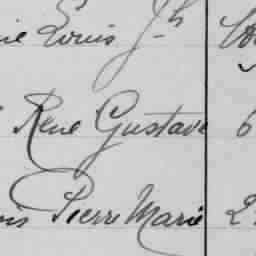 Louis Jh
René Gustave 6
Pierre Marie 2